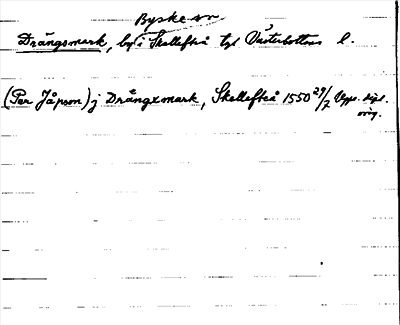 Byske sn
Drängsmark, by i Skellefteå tgl Västerbottens l.
(Per Jåpson) j Drängxmark, Skellefteå 1550 29/7 Upps. dipl.
orig.